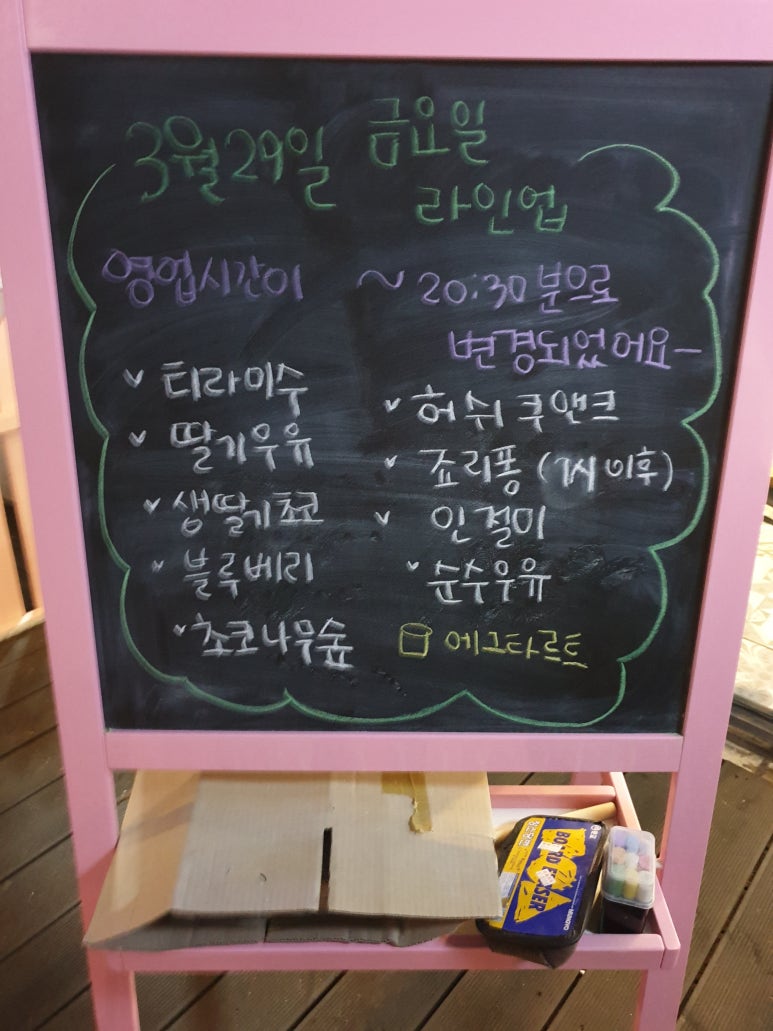 3월29일 금요일
라인업
영업시간이 ~20:30분으로
변경되었어요-
티라미수
딸기우유
생딸기초코
블루베리
초코나무숲
허쉬쿠앤크
죠리퐁 (7시 이후)
인절미
순수우유
에그타르트
BOARD ERASER